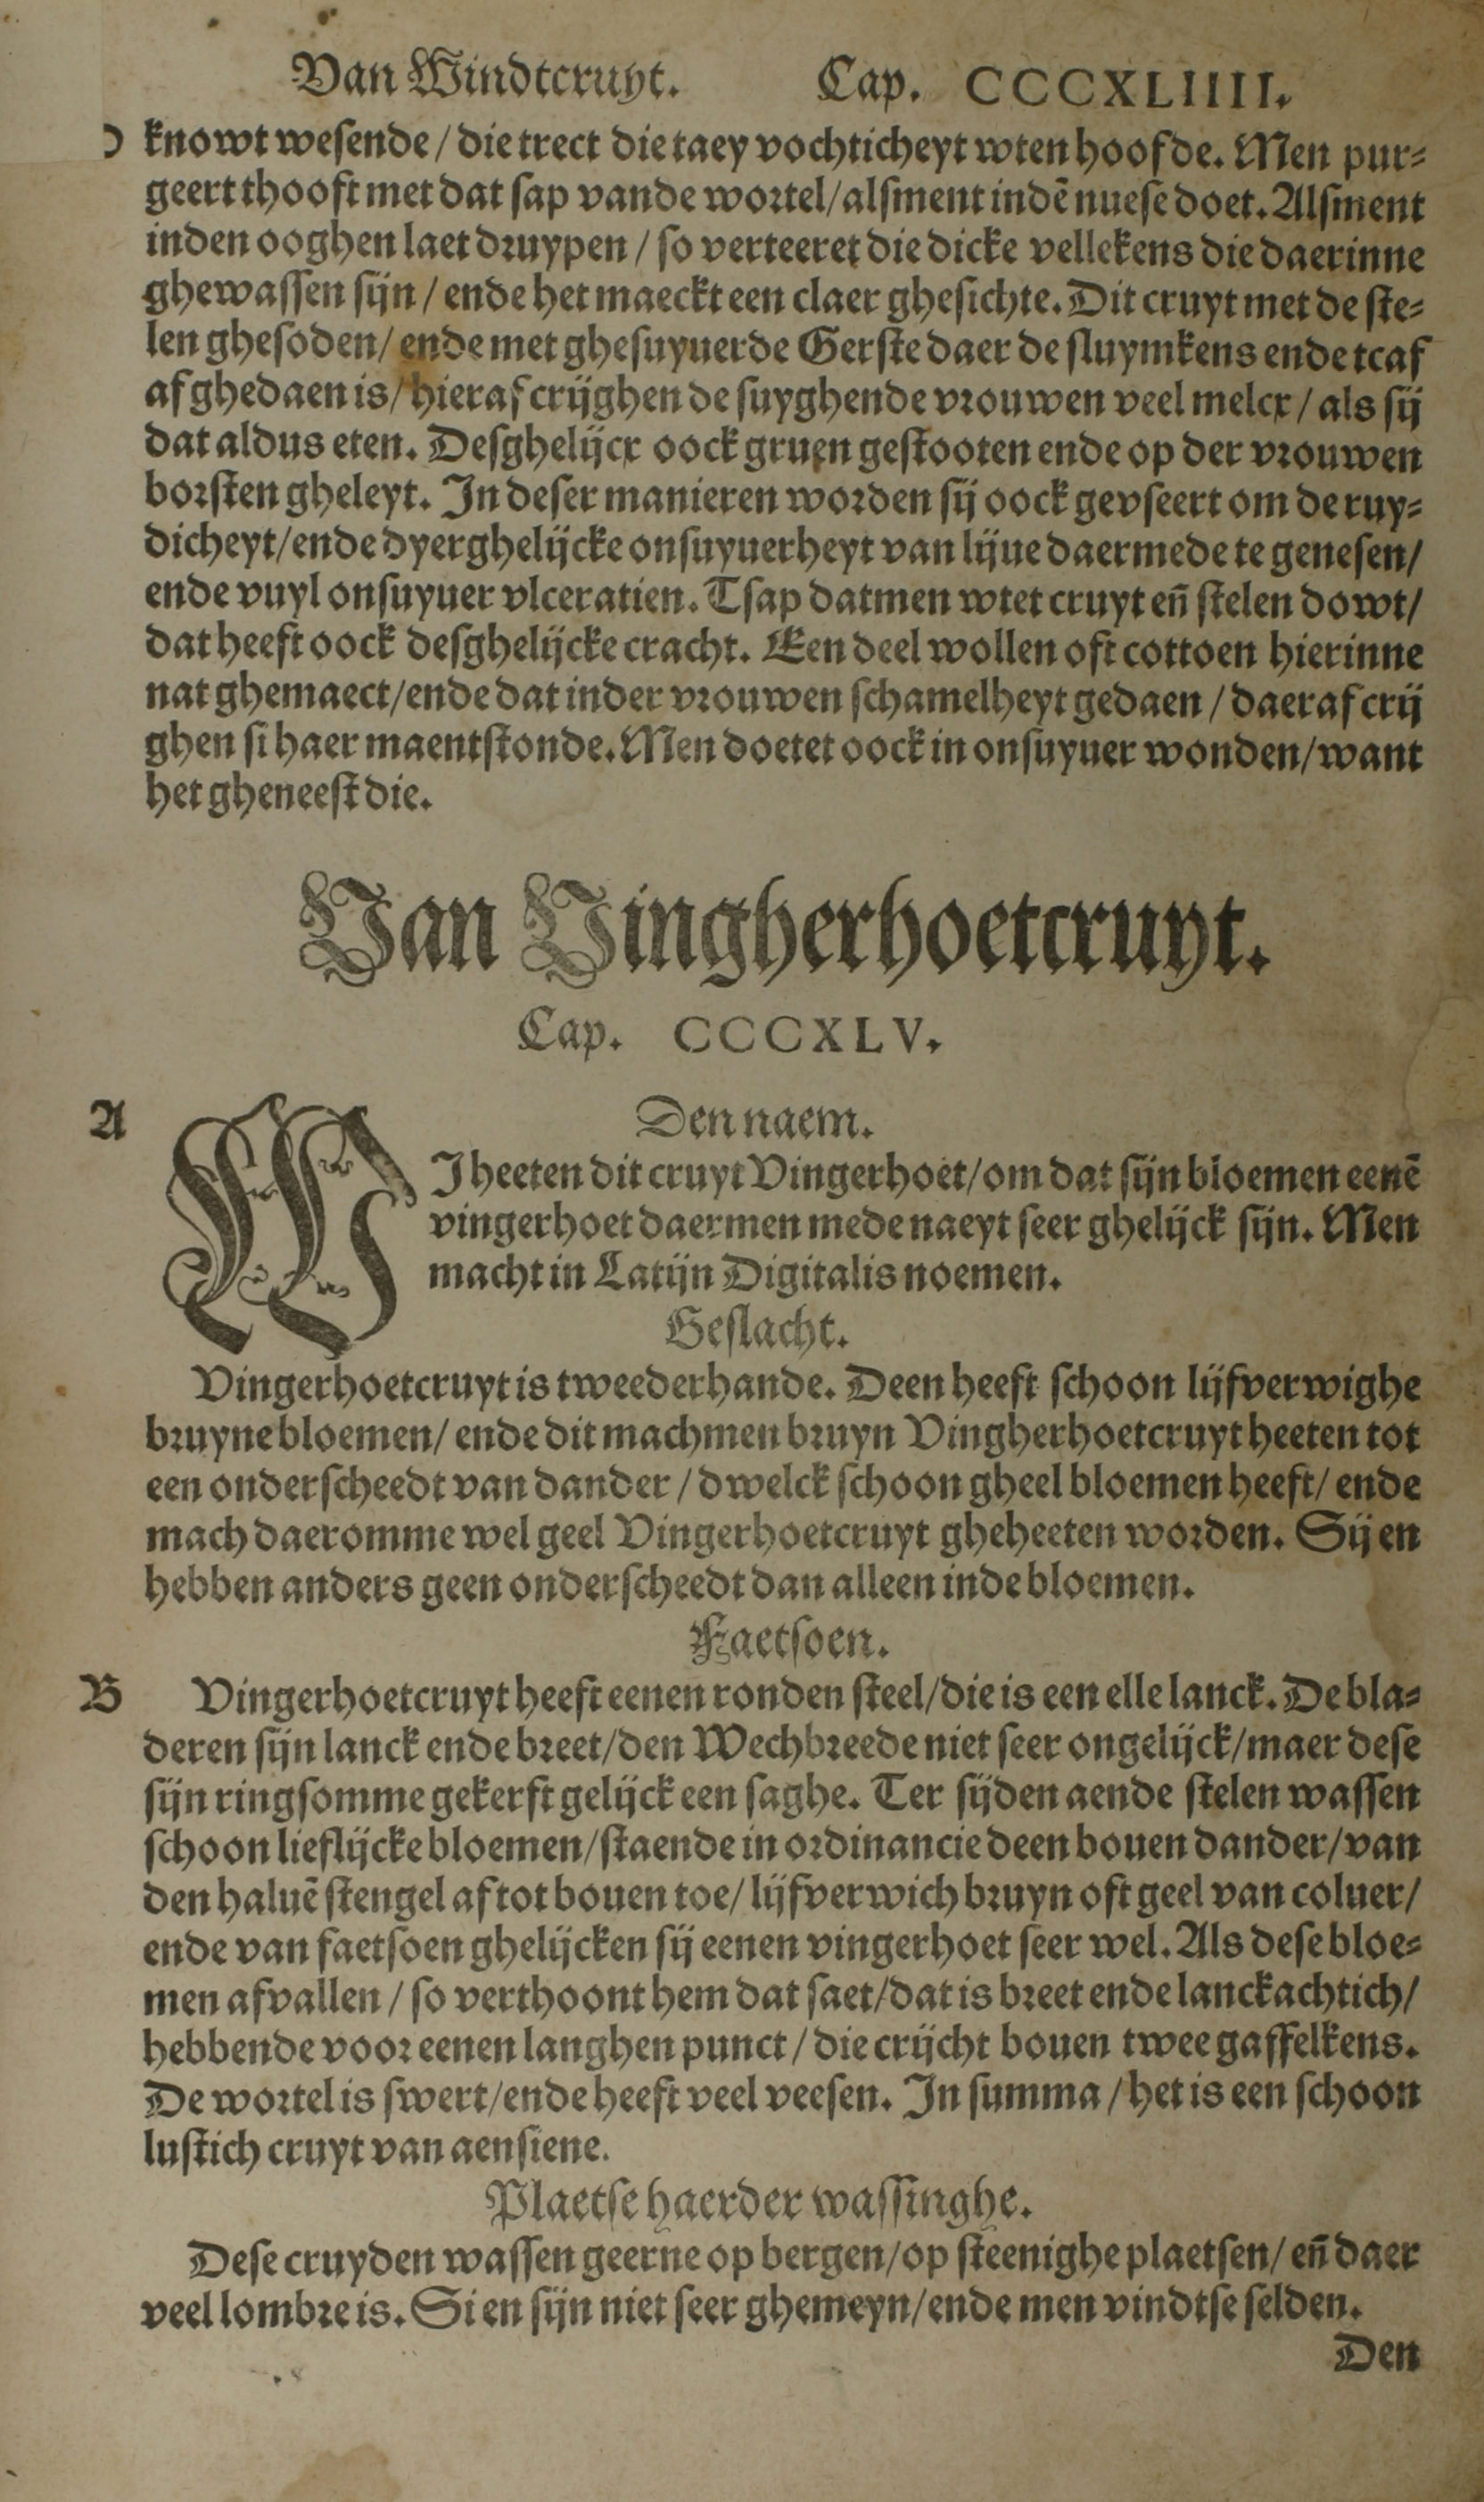 Van Windtcruyt. Cap. CCCXLIIII.
D knowt wesende / die trect die taey vochticheyt wten hoofde. Men pur⸗
geert thooft met dat sap vande wortel / alsment indē nuese doet. Alsment
inden ooghen laet druypen / so verteeret die dicke vellekens die daerinne
ghewassen sijn / ende het maeckt een claer ghesichte. Dit cruyt met de ste⸗
len ghesoden / ende met ghesuyuerde Gerste daer de sluymkens ende tcaf
af ghedaen is / hieraf crijghen de suyghende vrouwen veel melcx / als sij
dat aldus eten. Desghelijcx oock gruen gestooten ende op der vrouwen
borsten gheleyt. In deser manieren worden sij oock gevseert om de ruy⸗
dicheyt / ende dyerghelijcke onsuyuerheyt van lijue daermede te genesen /
ende vuyl onsuyuer vlceratien. Tsap datmen wtet cruyt eñ stelen dowt /
dat heeft oock desghelijcke cracht. Een deel wollen oft cottoen hierinne
nat ghemaect / ende dat inder vrouwen schamelheyt gedaen / daeraf crij
ghen si haer maentstonde. Men doetet oock in onsuyuer wonden / want
het gheneest die.
Van Vingherhoetcruyt.
Cap. CCCXLV.
A Den naem.
WI heeten dit cruyt Vingerhoet / om dat sijn bloemen eenē
vingerhoet daermen mede naeyt seer ghelijck sijn. Men
macht in Latijn Digitalis noemen.
Geslacht.
Vingerhoetcruyt is tweederhande. Deen heeft schoon lijfverwighe
bruyne bloemen / ende dit machmen bruyn Vingherhoetcruyt heeten tot
een onderscheedt van dander / dwelck schoon gheel bloemen heeft / ende
mach daeromme wel geel Vingerhoetcruyt gheheeten worden. Sij en
hebben anders geen onderscheedt dan alleen inde bloemen.
Faetsoen.
B Vingerhoetcruyt heeft eenen ronden steel / die is een elle lanck. De bla⸗
deren sijn lanck ende breet / den Wechbreede niet seer ongelijck / maer dese
sijn ringsomme gekerft gelijck een saghe. Ter sijden aende stelen wassen
schoon lieflijcke bloemen / staende in ordinancie deen bouen dander / van
den haluē stengel af tot bouen toe / lijfverwich bruyn oft geel van coluer /
ende van faetsoen ghelijcken sij eenen vingerhoet seer wel. Als dese bloe⸗
men afvallen / so verthoont hem dat saet / dat is breet ende lanckachtich /
hebbende voor eenen langhen punct / die crijcht bouen twee gaffelkens.
De wortel is swert / ende heeft veel veesen. In summa / het is een schoon
lustich cruyt van aensiene.
Plaetse haerder wassinghe.
Dese cruyden wassen geerne op bergen / op steenighe plaetsen / eñ daer
veel lombre is. Si en sijn niet seer ghemeyn / ende men vindtse selden.
Den